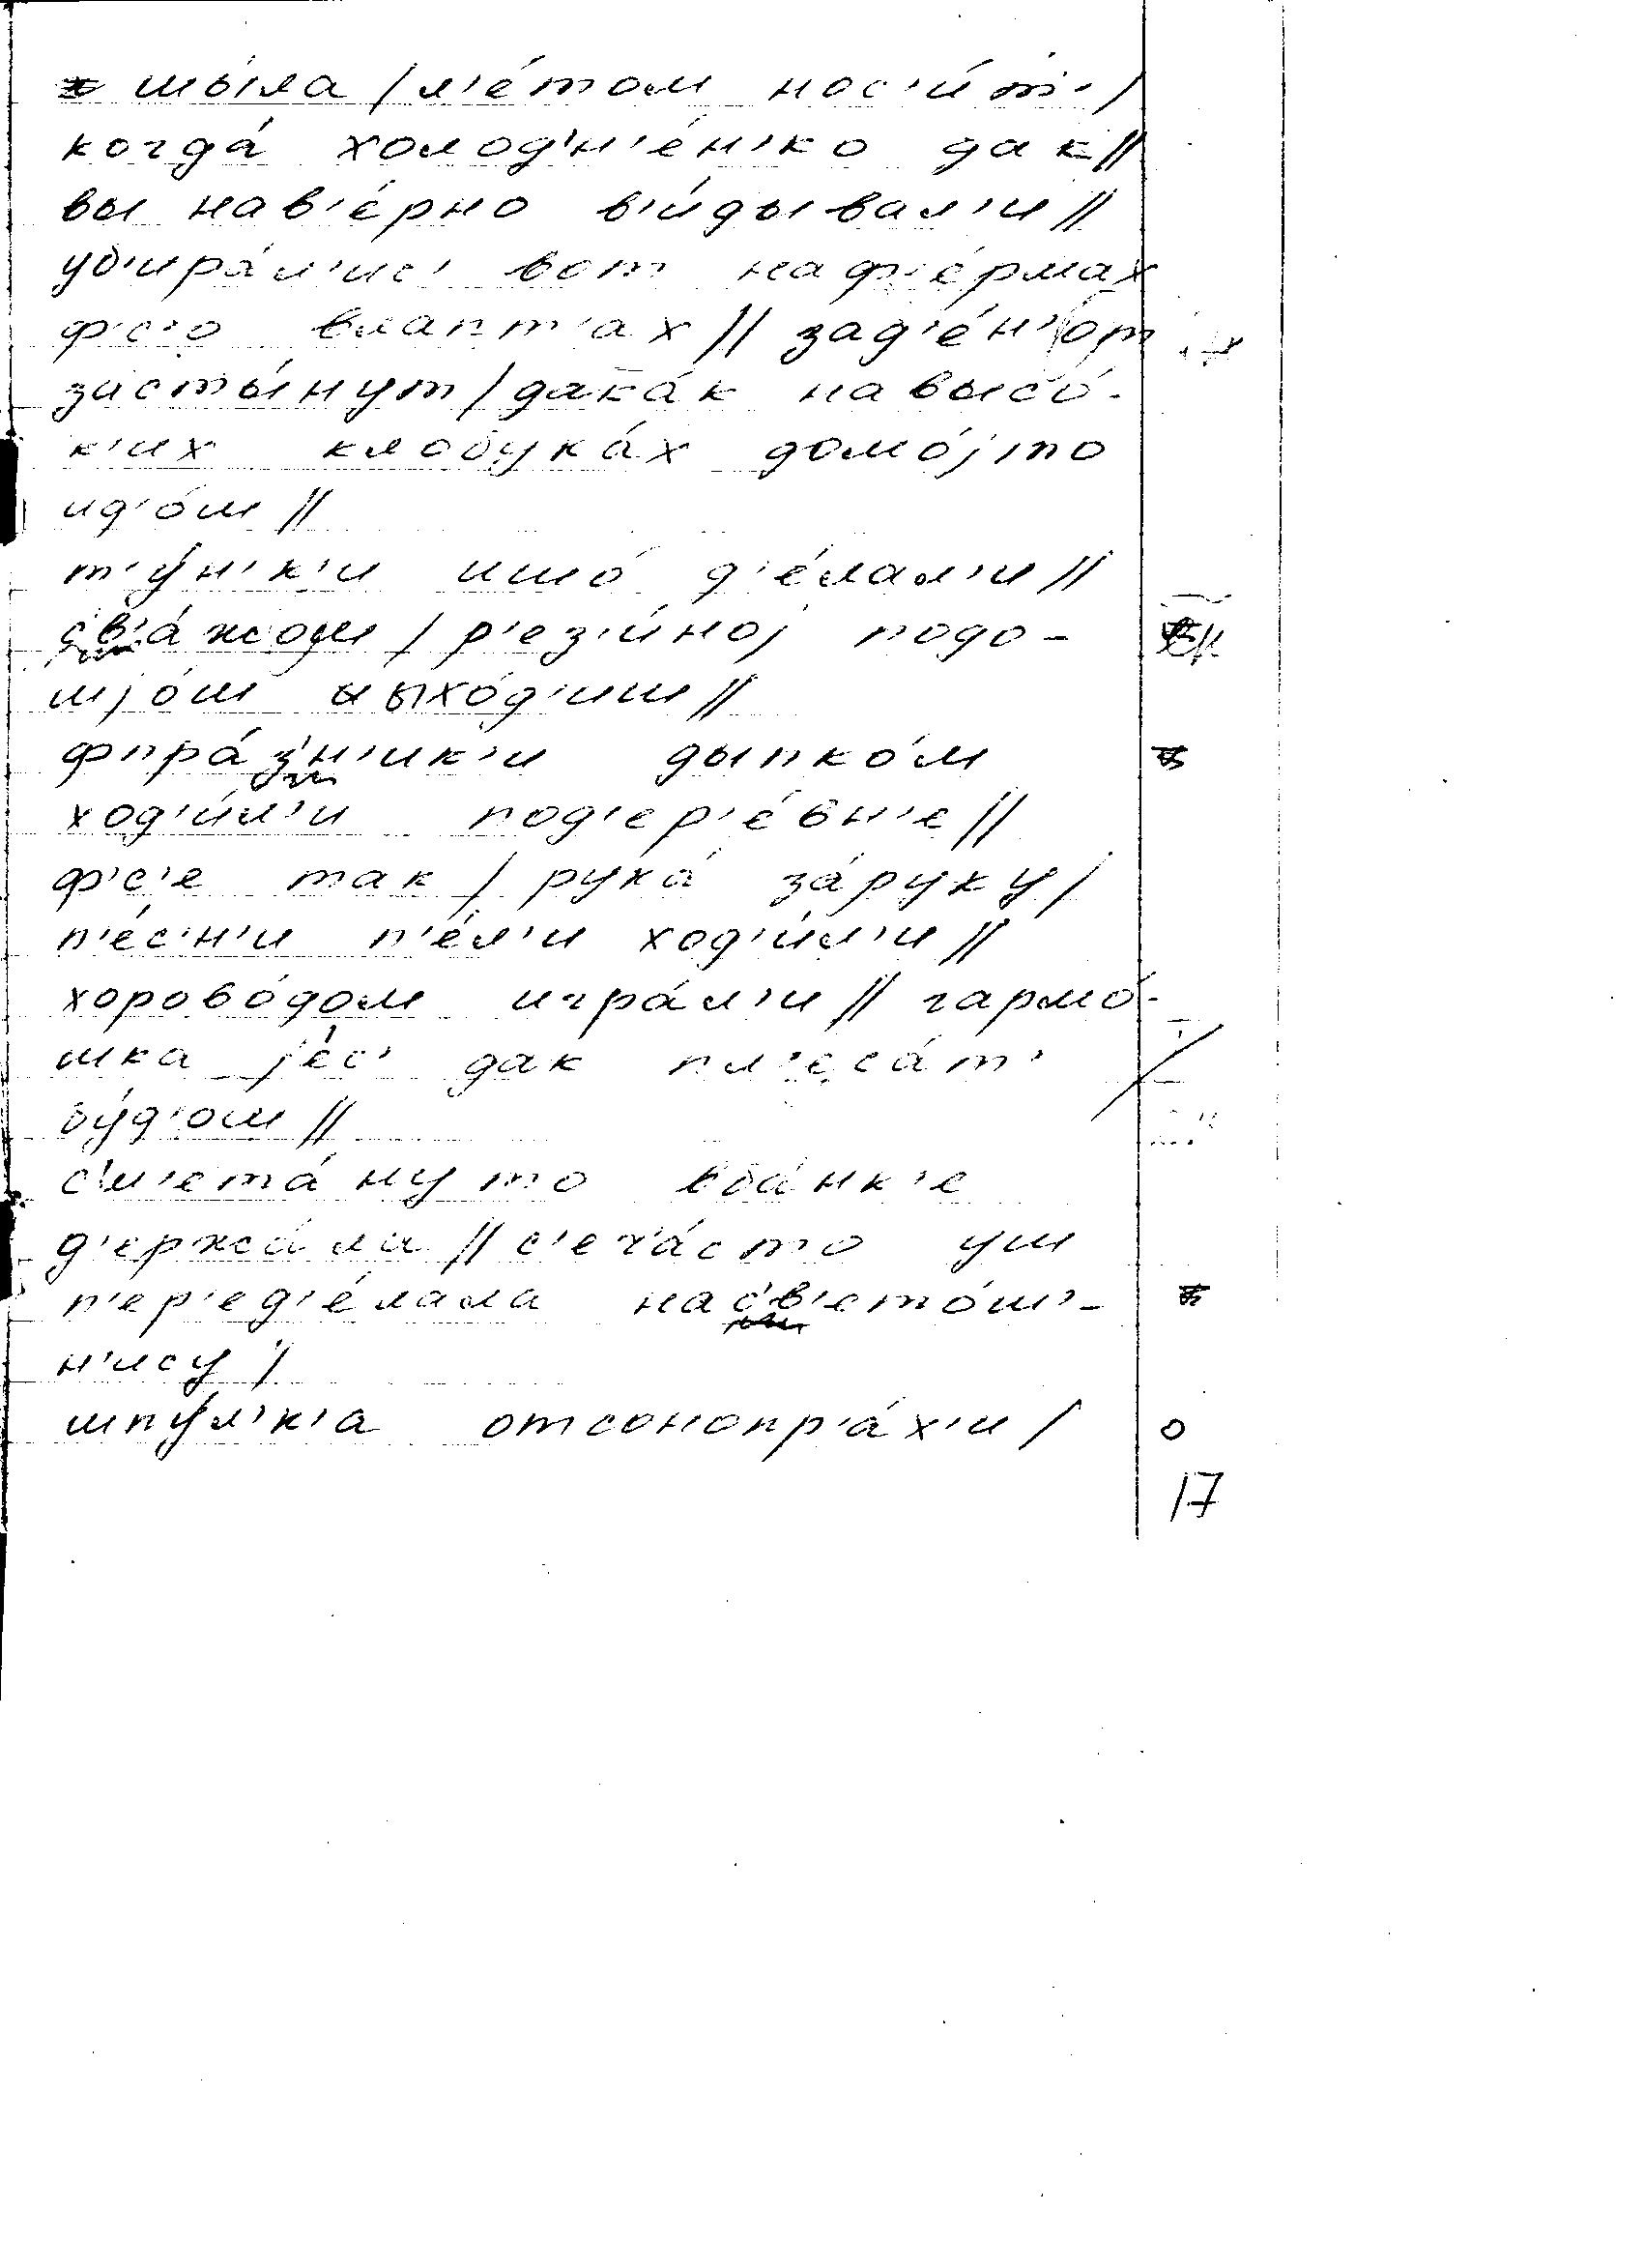 шы́ла / л'е́том нос'и́т' /
когда́ холод'н'е́н'ко дак //
вы нав'е́рно в'и́дывал'и //
уб'ира́л'ис' вот наф'е́рмах
ф'с'о влапт'ах // зад'е́н'от
засты́нут / дака́к навысо́-
к'их клобука́х домо́јто
ид'о́ш //
т'у́н'к'и ишо́ д'е́лал'и //
с'в'а́жош / р'ез'и́ној подо-
шјо́ш ыхо́д'иш //
фпра́з'н'ик'и дыпко́м
ход'и́л'и под'ер'е́вн'е //
ф'с'е так / рука́ за́руку /
п'е́с'н'и п'е́л'и ход'и́л'и //
хорово́дом игра́л'и // гармо́-
шка је́с' дак пл'еса́т'
бу́д'ош //
с'м'ета́ну то вба́нк'е
д'ержа́ла // с'еч'а́сто уш
п'ер'ед'е́лала нас'в'ето́ш'-
н'ису /
шпу́л'к'а отсонопр'а́х'и / о
17